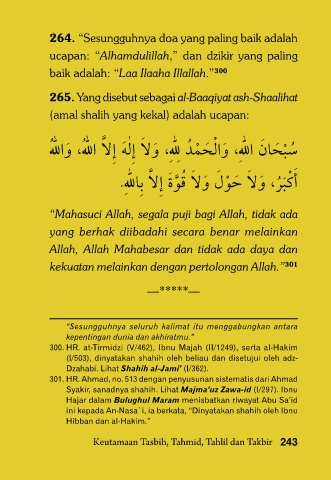 264. “Sesungguhnya doa yang paling baik adalah
ucapan: “Alhamdulillah,” dan dzikir yang paling
baik adalah: “Laa Ilaaha Illallah.”300
265. Yang disebut sebagai al-Baaqiyat ash-Shaalihat
(amal shalih yang kekal) adalah ucapan:
سُبْحَانَ اللهِ، وَالْحَمْدُ لِلهِ، وَلاَ إِلَهَ إِلاَّ اللهُ، وَاللهُ
أَكْبَرُ، وَلاَ حَوْلَ وَلاَ قُوَّةَ إِلاَّ بِاللهِ.
“Mahasuci Allah, segala puji bagi Allah, tidak ada
yang berhak diibadahi secara benar melainkan
Allah, Allah Mahabesar dan tidak ada daya dan
kekuatan melainkan dengan pertolongan Allah.”301
—*****—
“Sesungguhnya seluruh kalimat itu menggabungkan antara
kepentingan dunia dan akhiratmu.”
300. HR. at-Tirmidzi (V/462), Ibnu Majah (II/1249), serta al-Hakim
(I/503), dinyatakan shahih oleh beliau dan disetujui oleh adz-
Dzahabi. Lihat Shahih al-Jami’ (I/362).
301. HR. Ahmad, no. 513 dengan penyusunan sistematis dari Ahmad
Syakir, sanadnya shahih. Lihat Majma’uz Zawa-id (I/297). Ibnu
Hajar dalam Bulughul Maram menisbatkan riwayat Abu Sa`id
ini kepada An-Nasa`i, ia berkata, “Dinyatakan shahih oleh Ibnu
Hibban dan al-Hakim.”
Keutamaan Tasbih, Tahmid, Tahlil dan Takbir 243